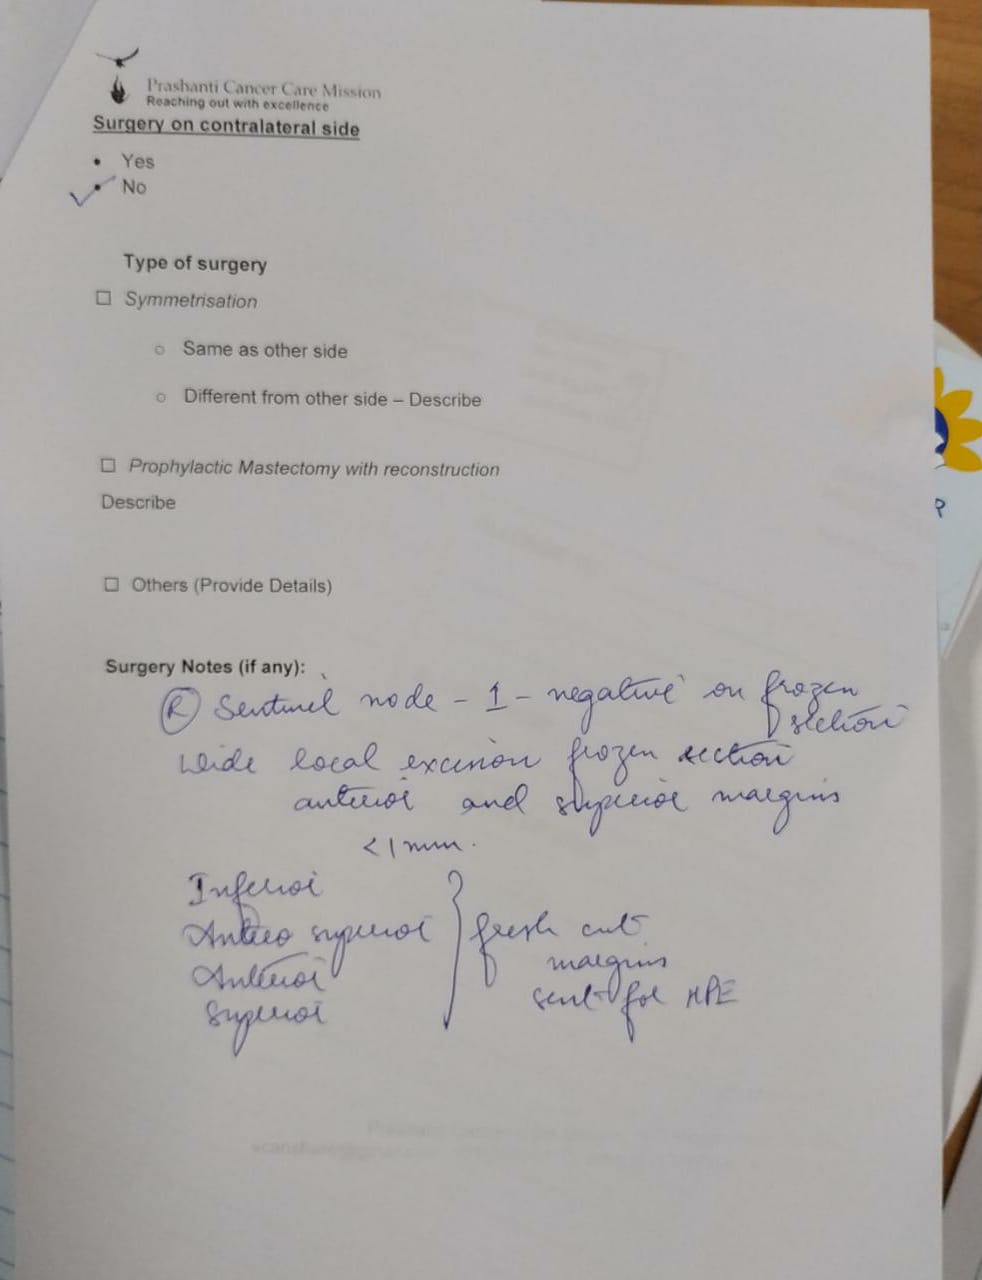 Prashanti Cancer Care Mission
Reaching out with excellence
Surgery on contralateral side
• Yes
• No
Type of surgery
☐ Symmetrisation
○ Same as other side
○ Different from other side – Describe
☐ Prophylactic Mastectomy with reconstruction
Describe
☐ Others (Provide Details)
Surgery Notes (if any):
Ⓡ Sentinel node - 1 - negative on frozen
section
Wide local excision frozen section
anterior and superior margins
<1mm.
Inferior
Antero superior } fresh cut
margins
Anterior
sent for HPE
Superior